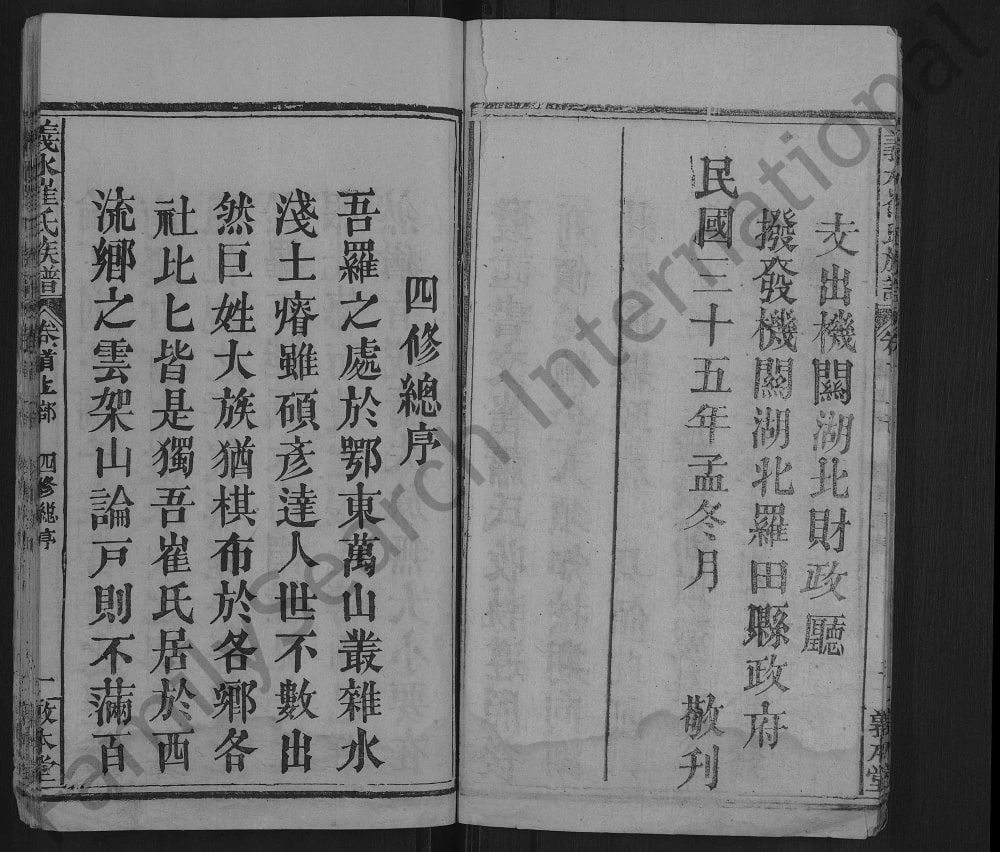 支出機關湖北財政廳
撥發機關湖北羅田縣政府
民國三十五年孟冬月　敬刊
敦本堂
四修總序
吾羅之處於鄂東萬山叢雜水
淺土瘠雖碩彥達人世不數出
然巨姓大族猶棋布於各鄉各
社比匕皆是獨吾崔氏居於西
流鄉之雲架山論戸則不滿百
義水崔氏族譜　卷首上部　四修總序　一　敦本堂
FamilySearch International